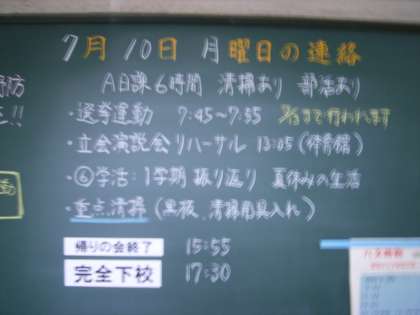 7月10日 月曜日の連絡
A日課6時間 清掃あり 部活あり
・選挙運動 7:45~7:55 まで行われます
・立会演説会リハーサル 13:05 (体育館)
・⑥学活:1学期 振り返り 夏休みの生活
・重点清掃 (黒板、清掃用具入れ)
帰りの会終了 15:55
完全下校 17:30